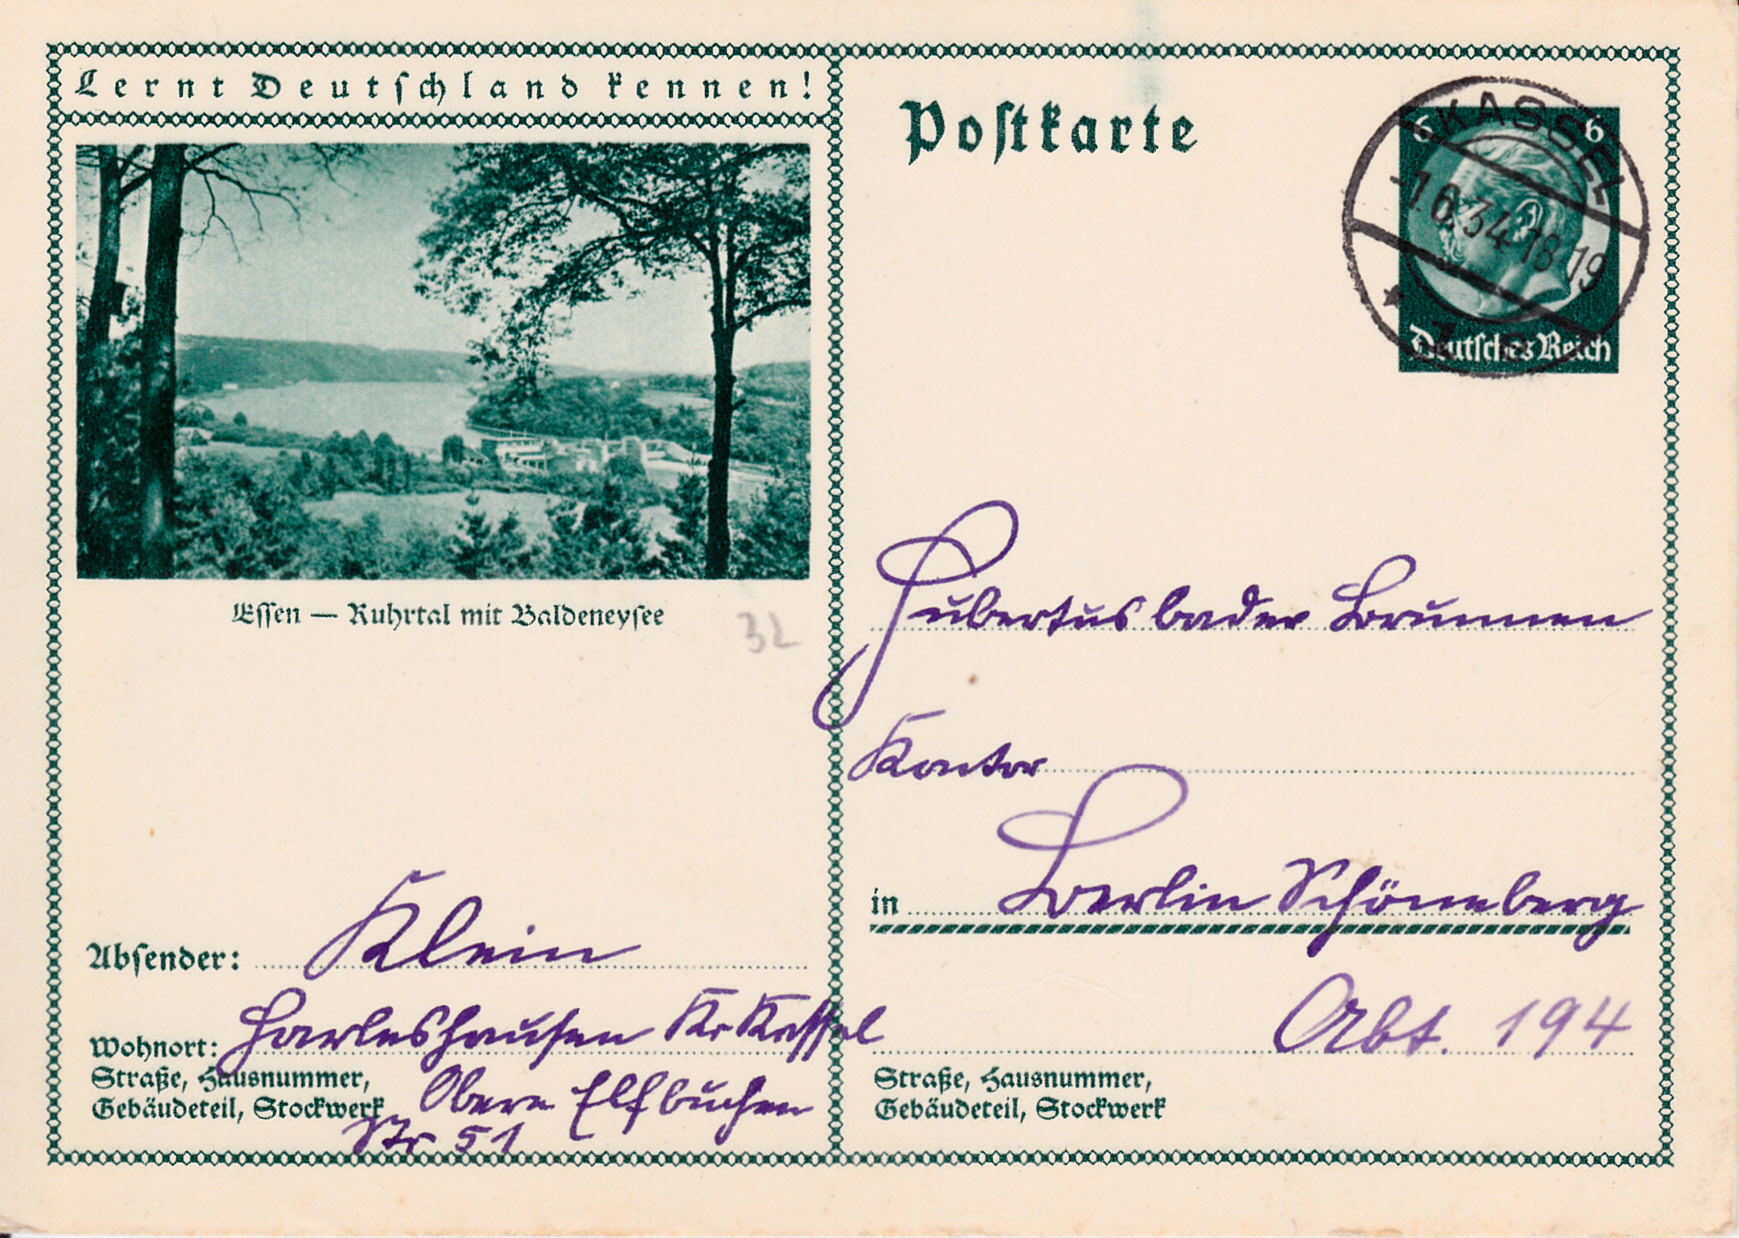 Lernt Deutschland kennen!
Postkarte
6 6
KASSEL
-1.6.34 18-19
*
Deutsches Reich
Essen — Ruhrtal mit Baldeneysee
32
Hubertusbader Brunnen
Kontor
in Berlin Schöneberg
Abt. 194
Straße, Hausnummer,
Gebäudeteil, Stockwerk
Absender: Klein
Wohnort: Harleshausen Kr Kassel
Straße, Hausnummer,
Gebäudeteil, Stockwerk Obere Elfbuchen
Str 51